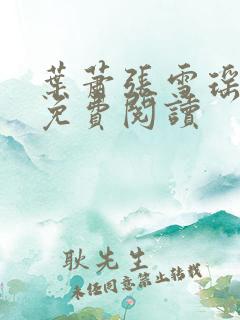 葉蕭張雪瑶
免費閱讀
耿先生
未經同意禁止轉載